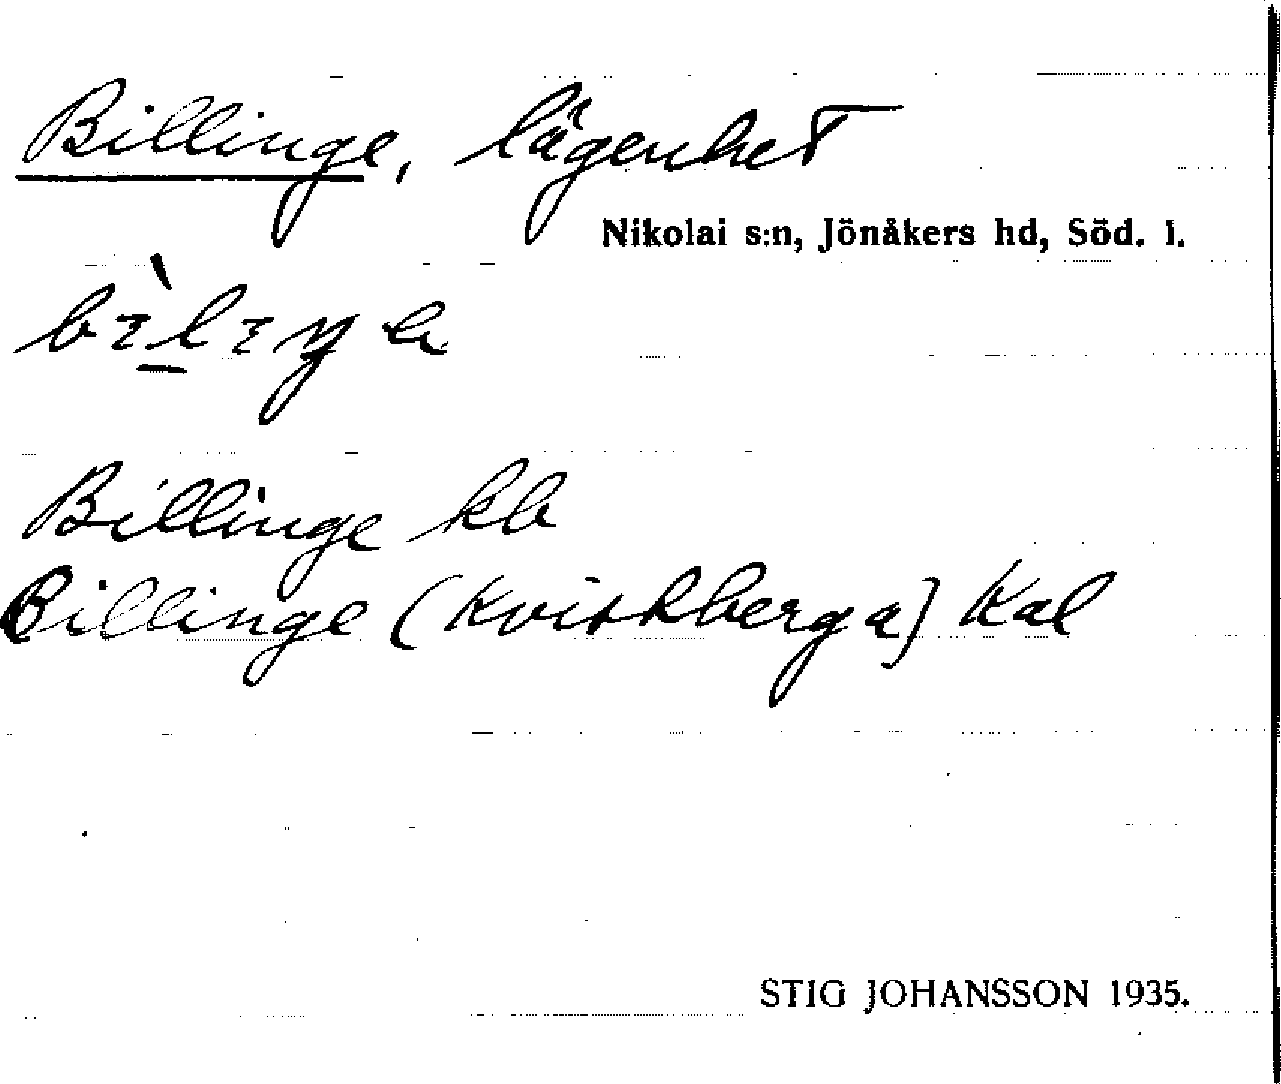 Billinge, lägenhet
Nikolai s:n, Jönåkers hd, Söd. l.
Billinge kb
Billinge (Kviskberga) Kal
STIG JOHANSSON 1935.